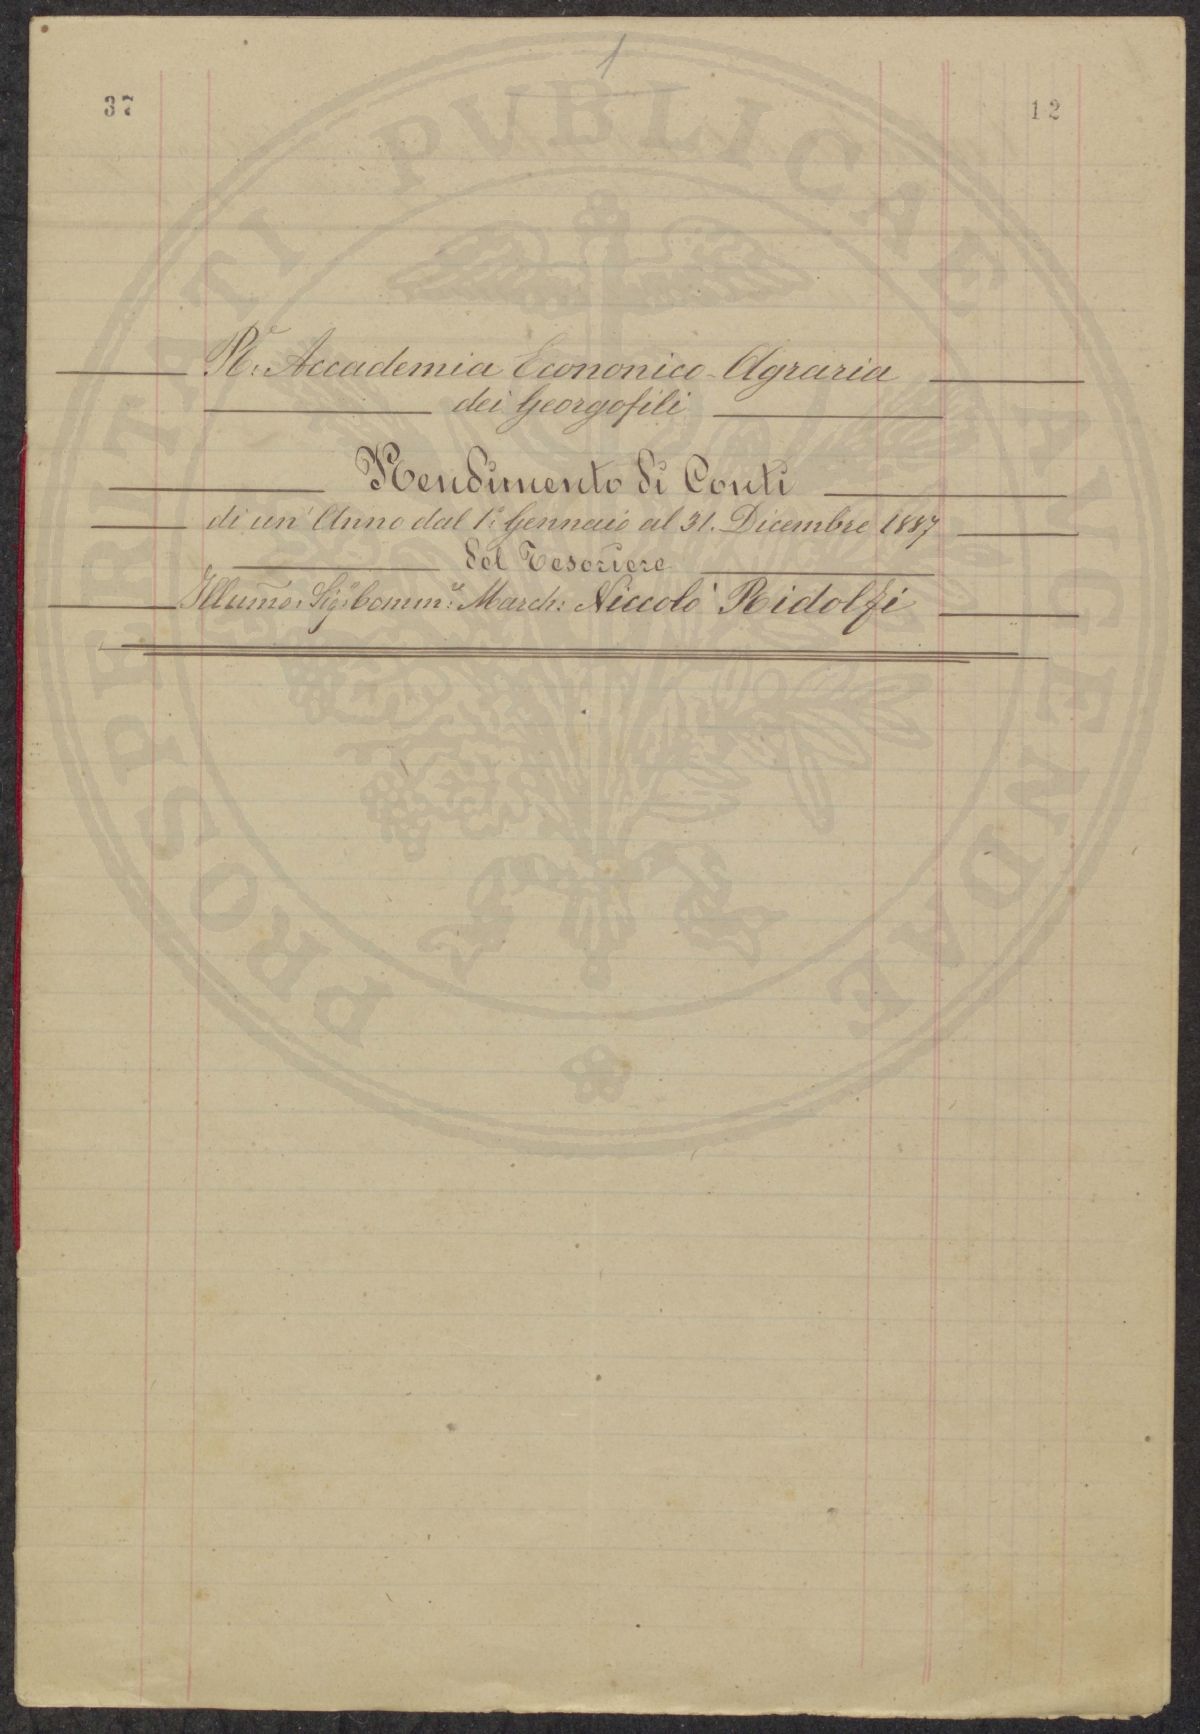 1
37
12
R.e Accademia Econonico-Agraria
dei Georgofili
Rendimento di Conti
di un' Anno dal 1° Gennaio al 31. Dicembre 1887
del Tesoriere
Illumo. Sig.r Comm.re March: Niccolò Ridolfi
PROSPERITATI PVBLICAE AVGENDAE